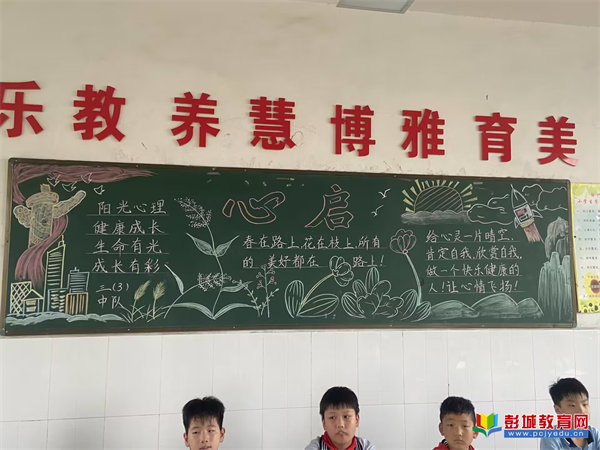 乐教 养慧 博雅 育美
心启
阳光心理
健康成长
生命有光
成长有彩
三(3)
中队
春在路上,花在枝上,所有
的美好都在路上!
给心灵一片晴空,
肯定自我,欣赏自我,
做一个快乐健康的
人!让心情飞扬!
彭城教育网
www.pcjyedu.cn